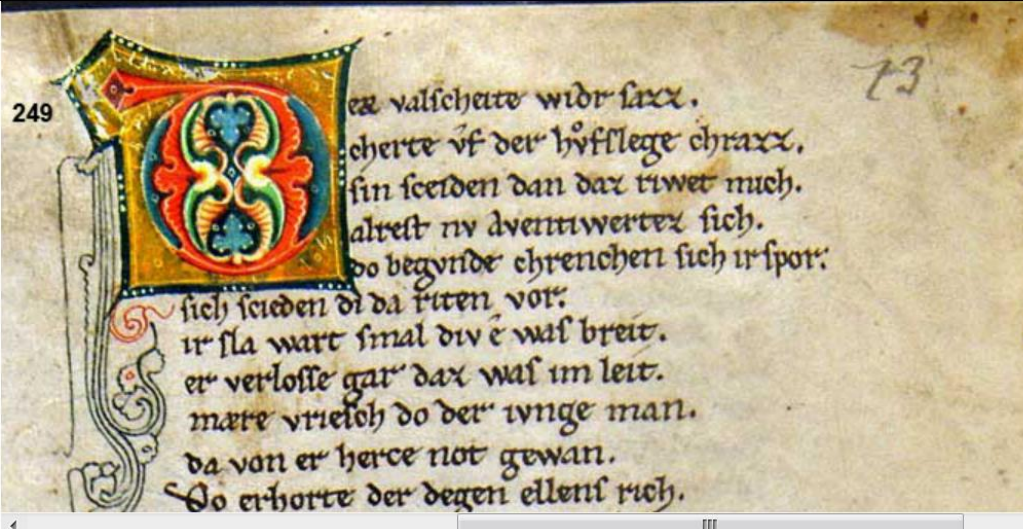 249
13
Der valscheite widr sazz.
cherte vf der hv̊fslege chrazz.
sin sceiden dan daz riwet mich.
alrest nv aventiwertez sich.
do begvnde chrenchen sich ir spor.
sich scieden di da riten vor.
ir sla wart smal div ê was breit.
er verlosse gar daz was im leit.
mære vriesch do der ivnge man.
da von er herce not gewan.
Do erhorte der degen ellens rich.